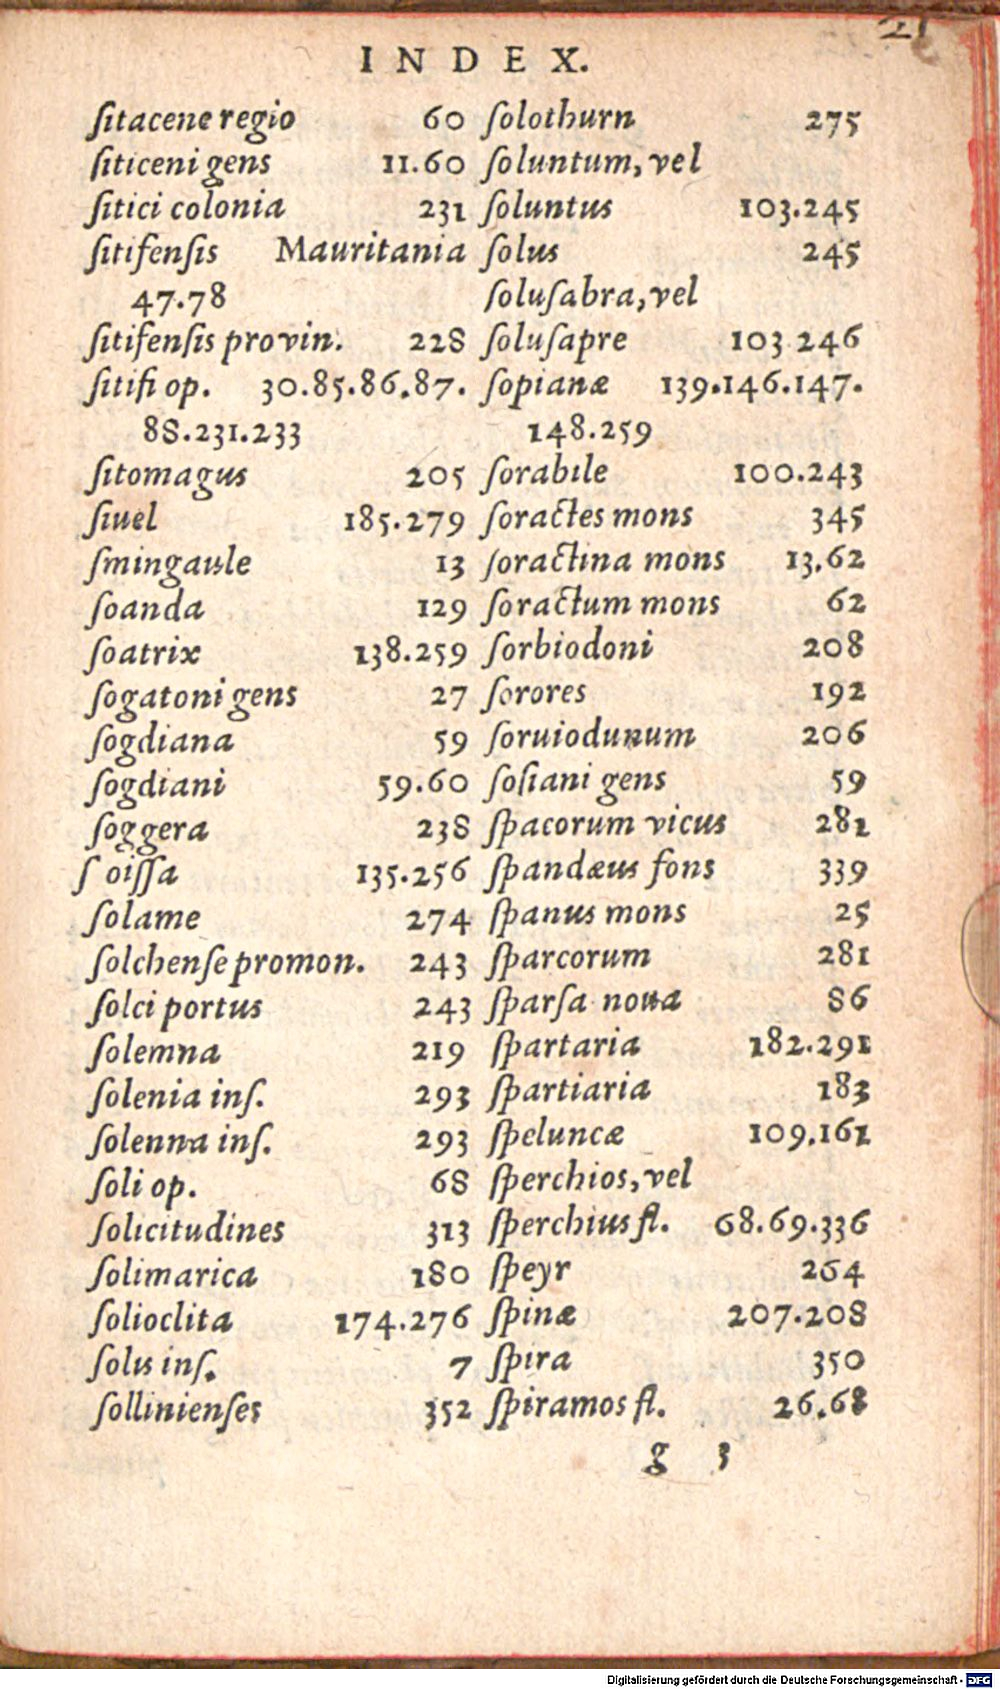 21
INDEX.
ſitacene regio 60
ſiticeni gens 11.60
ſitici colonia 231
ſitifenſis Mauritania
47.78
ſitifenſis provin. 228
ſitifi op. 30.85.86.87.
88.231.233
ſitomagus 205
ſiuel 185.279
ſmingaule 13
ſoanda 129
ſoatrix 138.259
ſogatoni gens 27
ſogdiana 59
ſogdiani 59.60
ſoggera 238
ſ oiſſa 135.256
ſolame 274
ſolchenſe promon. 243
ſolci portus 243
ſolemna 219
ſolenia inſ. 293
ſolenna inſ. 293
ſoli op. 68
ſolicitudines 313
ſolimarica 180
ſolioclita 174.276
ſolis inſ. 7
ſollinienſes 352
ſolothurn 275
ſoluntum, vel
ſoluntus 103.245
ſolus 245
ſoluſabra, vel
ſoluſapre 103 246
ſopianæ 139.146.147.
148.259
ſorabile 100.243
ſoractes mons 345
ſoractina mons 13.62
ſoractum mons 62
ſorbiodoni 208
ſorores 192
ſoruiodunum 206
ſoſiani gens 59
ſpacorum vicus 281
ſpandæus fons 339
ſpanus mons 25
ſparcorum 281
ſparſa noua 86
ſpartaria 182.291
ſpartiaria 183
ſpeluncæ 109.161
ſperchios, vel
ſperchius fl. 68.69.336
ſpeyr 264
ſpinæ 207.208
ſpira 350
ſpiramos fl. 26.68
g 3
Digitalisierung gefördert durch die Deutsche Forschungsgemeinschaft - DFG